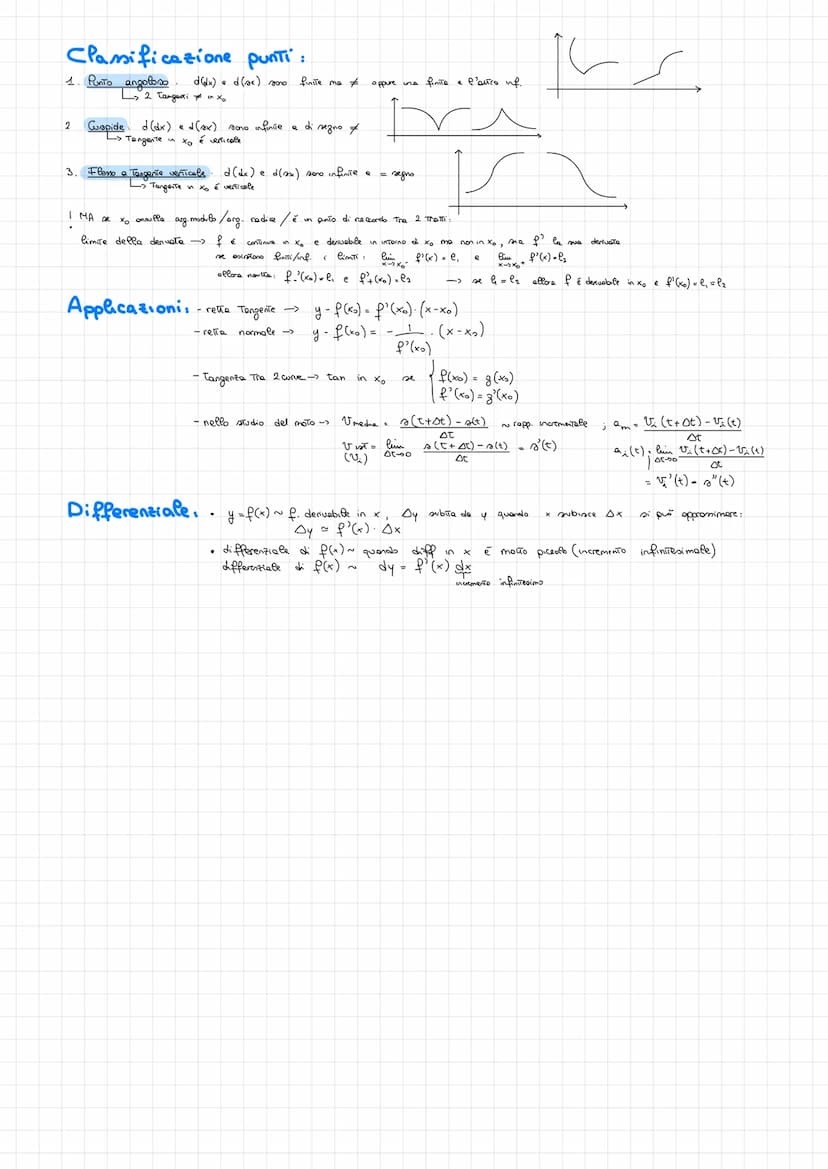 Classificazione punti:
1. Punto angoloso. d(dx) e d(sx) sono finite ma ≠ oppure una finita e l'altra inf.
↳ 2 Tangenti ≠ in x₀
2 Cuspide. d(dx) e d(sx) sono infinite e di segno ≠
↳ Tangente in x₀ é verticale
3. Flesso a Tangente verticale. d(dx) e d(sx) sono infinite e = segno
↳ Tangente in x₀ é verticale
! MA se x₀ annulla arg. modulo/arg. radice/é un punto di raccordo Tra 2 Tratti:
limite della derivata → f é continua in x₀ e derivabile in intorno di x₀ ma non in x₀, sia f' la sua derivata
se esistono finiti/inf. i limiti: lim x→x₀⁻ f'(x) = l₁ e lim x→x₀⁺ f'(x) = l₂
allora risulta: f₋'(x₀) = l₁ e f'₊(x₀) = l₂ → se l₁ = l₂ allora f é derivabile in x₀ e f'(x₀) = l₁ = l₂
Applicazioni: - retta Tangente → y - f(x₀) = f'(x₀)·(x-x₀)
- retta normale → y - f(x₀) = - 1/f'(x₀) · (x-x₀)
- Tangenza Tra 2 curve → tan in x₀ se { f(x₀) = g(x₀)
f'(x₀) = g'(x₀)
- nello studio del moto → Vmedia = s(t+Δt) - s(t)/Δt ~ rapp. incrementale ; aₘ = Vᵢ(t+Δt) - Vᵢ(t)/Δt
V ist = lim Δt→0 s(t+Δt) - s(t)/Δt = s'(t) aᵢ(t) = lim Δt→0 Vᵢ(t+Δt) - Vᵢ(t)/Δt
(Vᵢ) = Vᵢ'(t) = s''(t)
Differenziale: • y = f(x) ~ f. derivabile in x, Δy subita da y quando x subisce Δx si può approssimare:
Δy ≃ f'(x)·Δx
• differenziale di f(x) ~ quando diff in x é molto piccolo (incremento infinitesimale)
differenziale di f(x) ~ dy = f'(x) dx
incremento infinitesimo